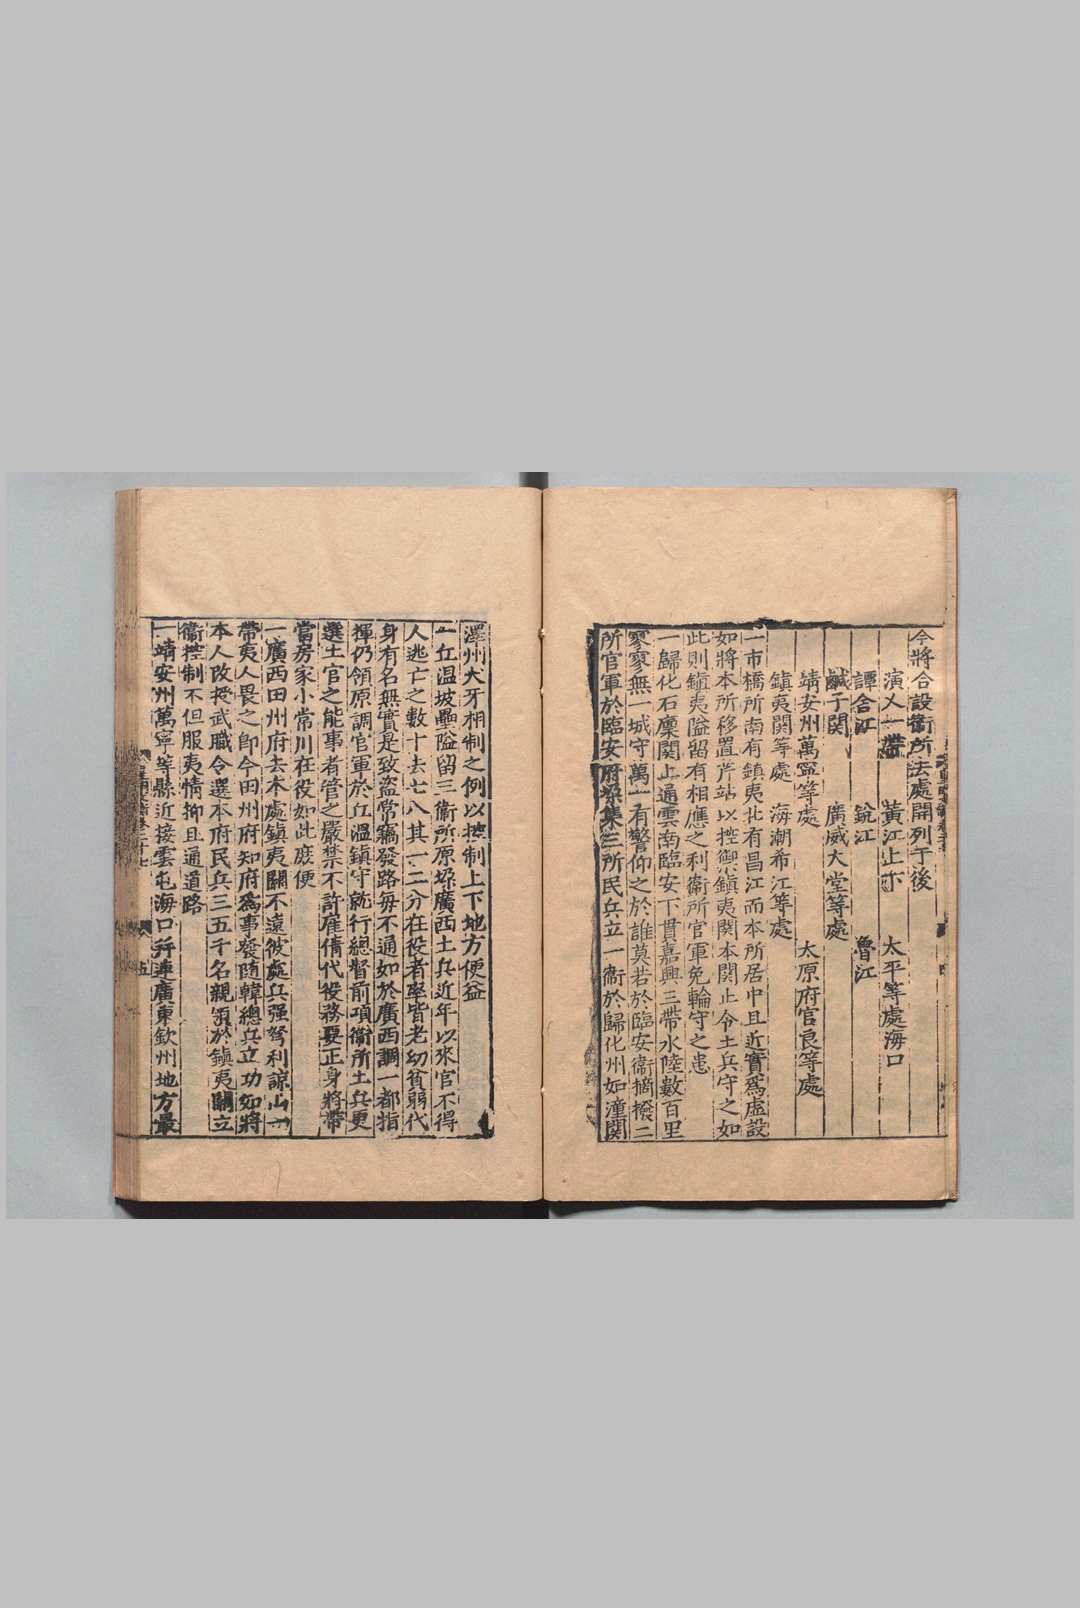 今將合設衞所法處開列于後
演乂一帶 黃江上下 太平等處海口
譚合江 銃江 魯江
鹹子関 廣威大堂等處
靖安州萬寧等處 太原府官良等處
鎮夷関等處 海潮希江等處
一市橋所南有鎮夷北有昌江而本所居中且近實爲虛設
如將本所移置芹站以控禦鎮夷関本関止令土兵守之如
此則鎮夷隘留有相應之利衞所官軍免輪守之患
一歸化石麇関上通雲南臨安下貫嘉興三帶水陸數百里
寥寥無一城守萬一有警仰之於誰莫若於臨安衞摘撥二
所官軍於臨安府垜集三所民兵立一衞於歸化州如潼関
澤州犬牙相制之例以控制上下地方便益
一丘温坡壘隘留三衞所原垜廣西土兵近年以來官不得
人逃亡之數十去七八其一二分在役者率皆老幼貧弱代
身有名無實是致盜常竊發路每不通如於廣西調一都指
揮仍領原調官軍於丘溫鎮守就行總督前項衞所土兵更
選土官之能事者管之嚴禁不許雇倩代役務要正身將帶
當房家小常川在役如此庶便
一廣西田州府去本處鎮夷關不遠彼處兵强弩利諒山一
帶夷人畏之卽今田州府知府爲事發随韓總兵立功如將
本人改授武職令選本府民兵三五千名親領於鎮夷關立
衞控制不但服夷情抑且通道路
一靖安州萬寧等縣近接雲屯海口并連廣東欽州地方最
五